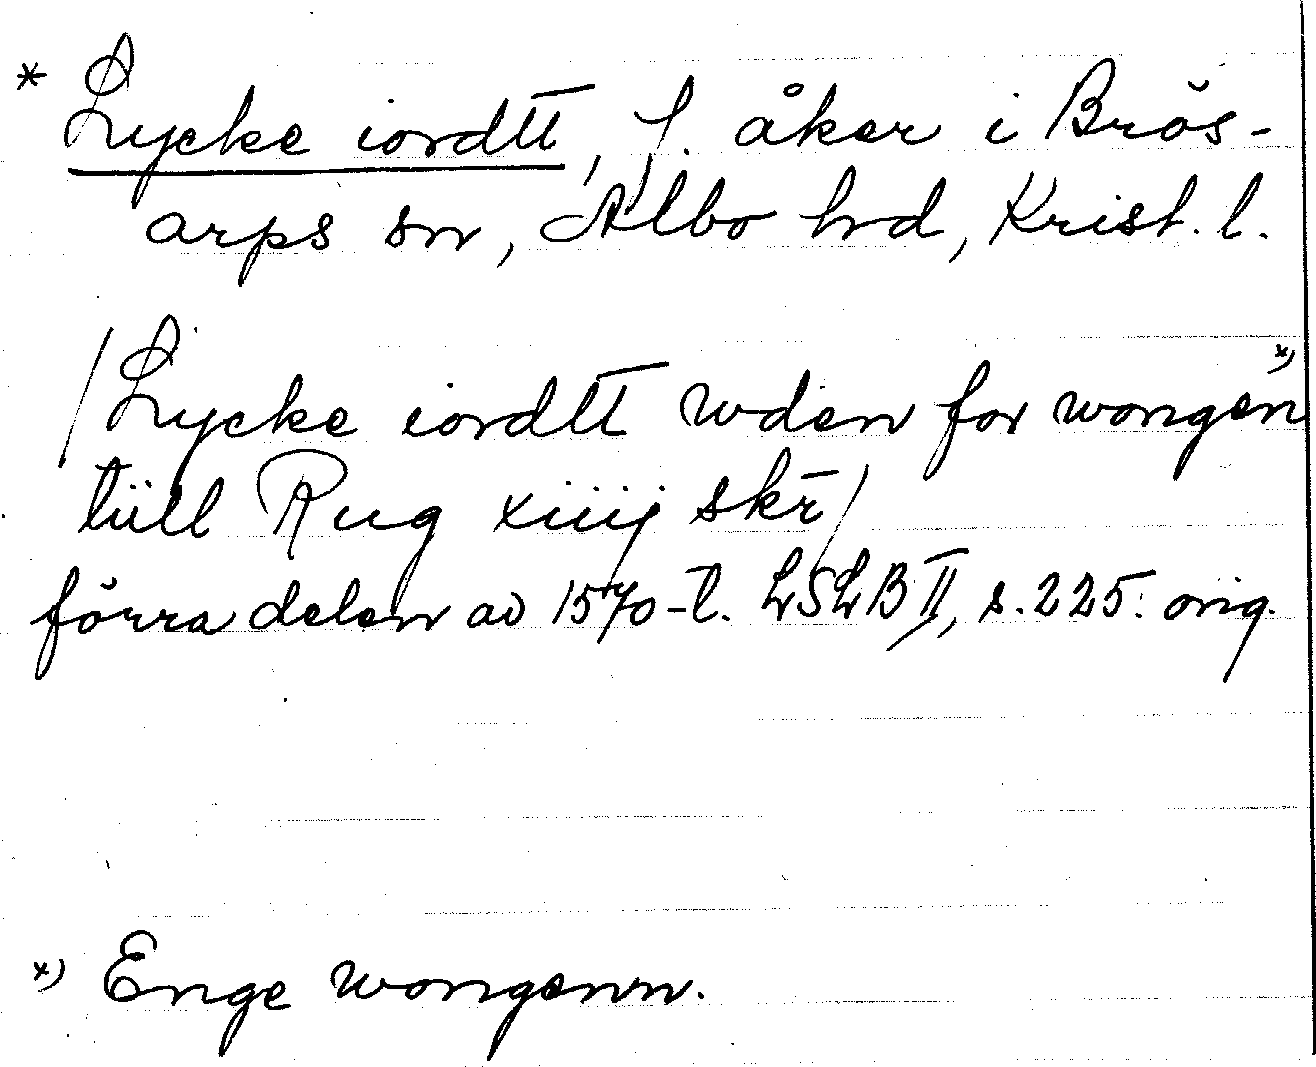 * Lycke iordtt, f. åker i Brös-
arps sn, Albo hd, Krist. l.
/Lycke iordtt wden for wongen x)
tüll Rug xiiij skr̄/
förra delen av 1570-t. LSLB II, s. 225. orig.
x) Enge wongenn.